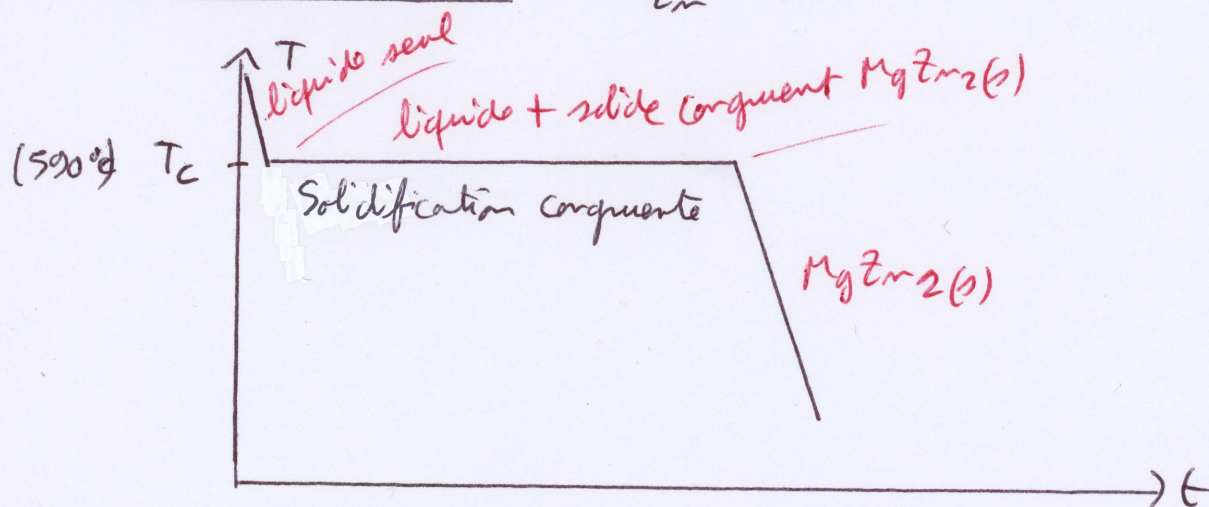 Zn
T
liquide seul
liquide + solide congruent MgZn2(s)
(590°) Tc
Solidification congruente
MgZn2(s)
t